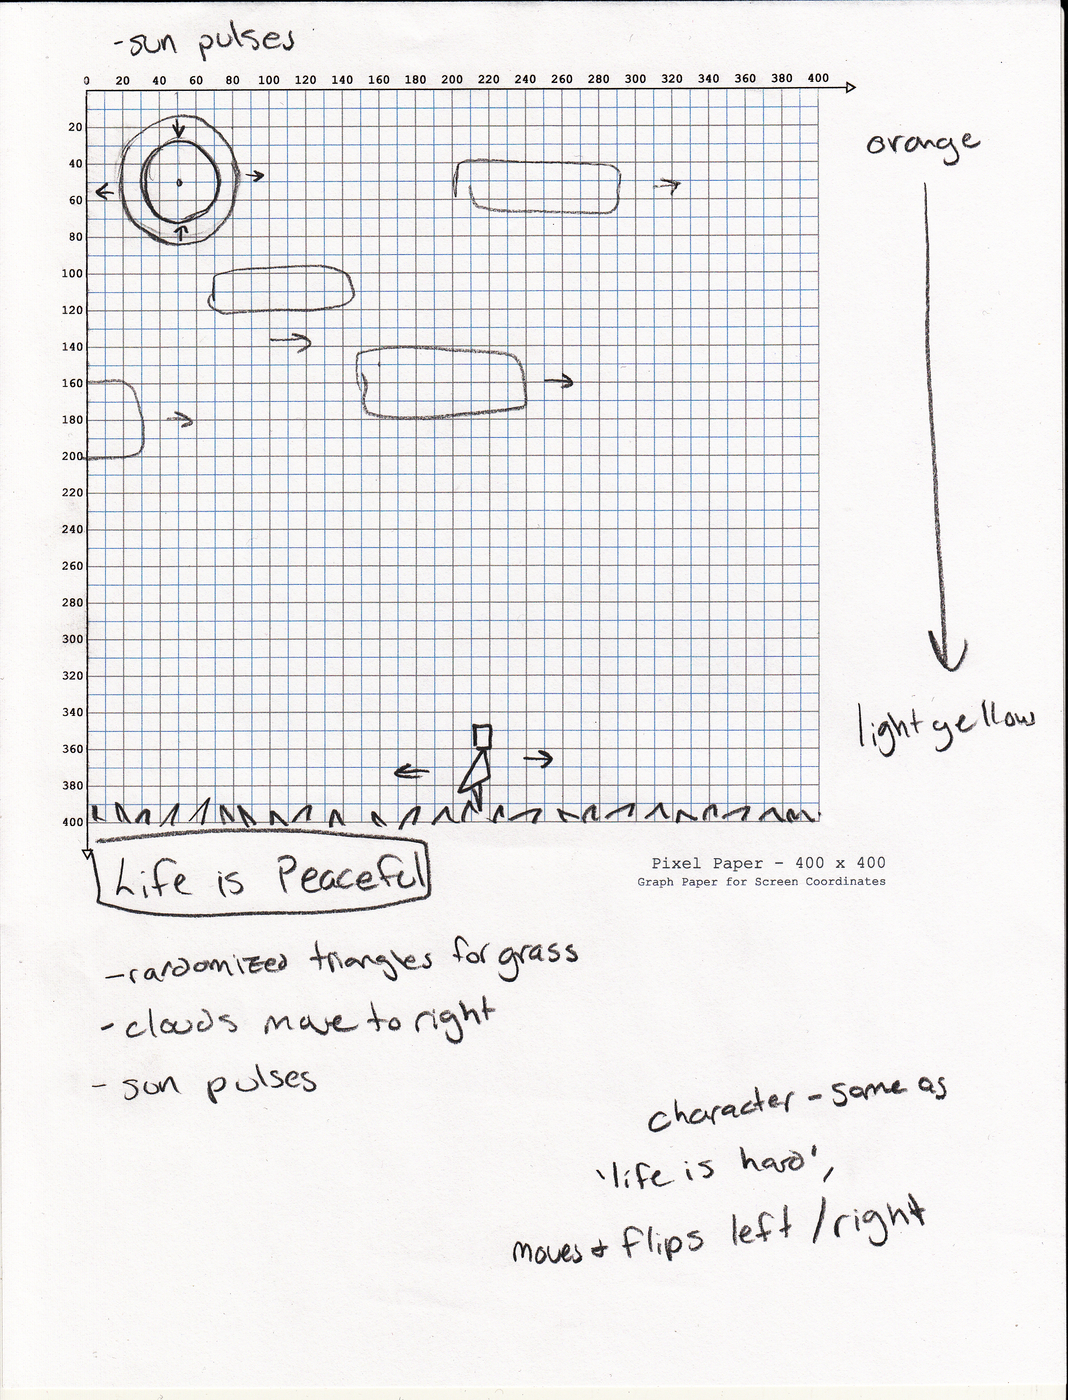 -sun pulses
0 20 40 60 80 100 120 140 160 180 200 220 240 260 280 300 320 340 360 380 400
20
40
60
80
100
120
140
160
180
200
220
240
260
280
300
320
340
360
380
400
orange
light yellow
Pixel Paper - 400 x 400
Graph Paper for Screen Coordinates
Life is Peaceful
-randomized triangles for grass
- clouds move to right
- sun pulses
character - same as
'life is hard',
moves + flips left / right